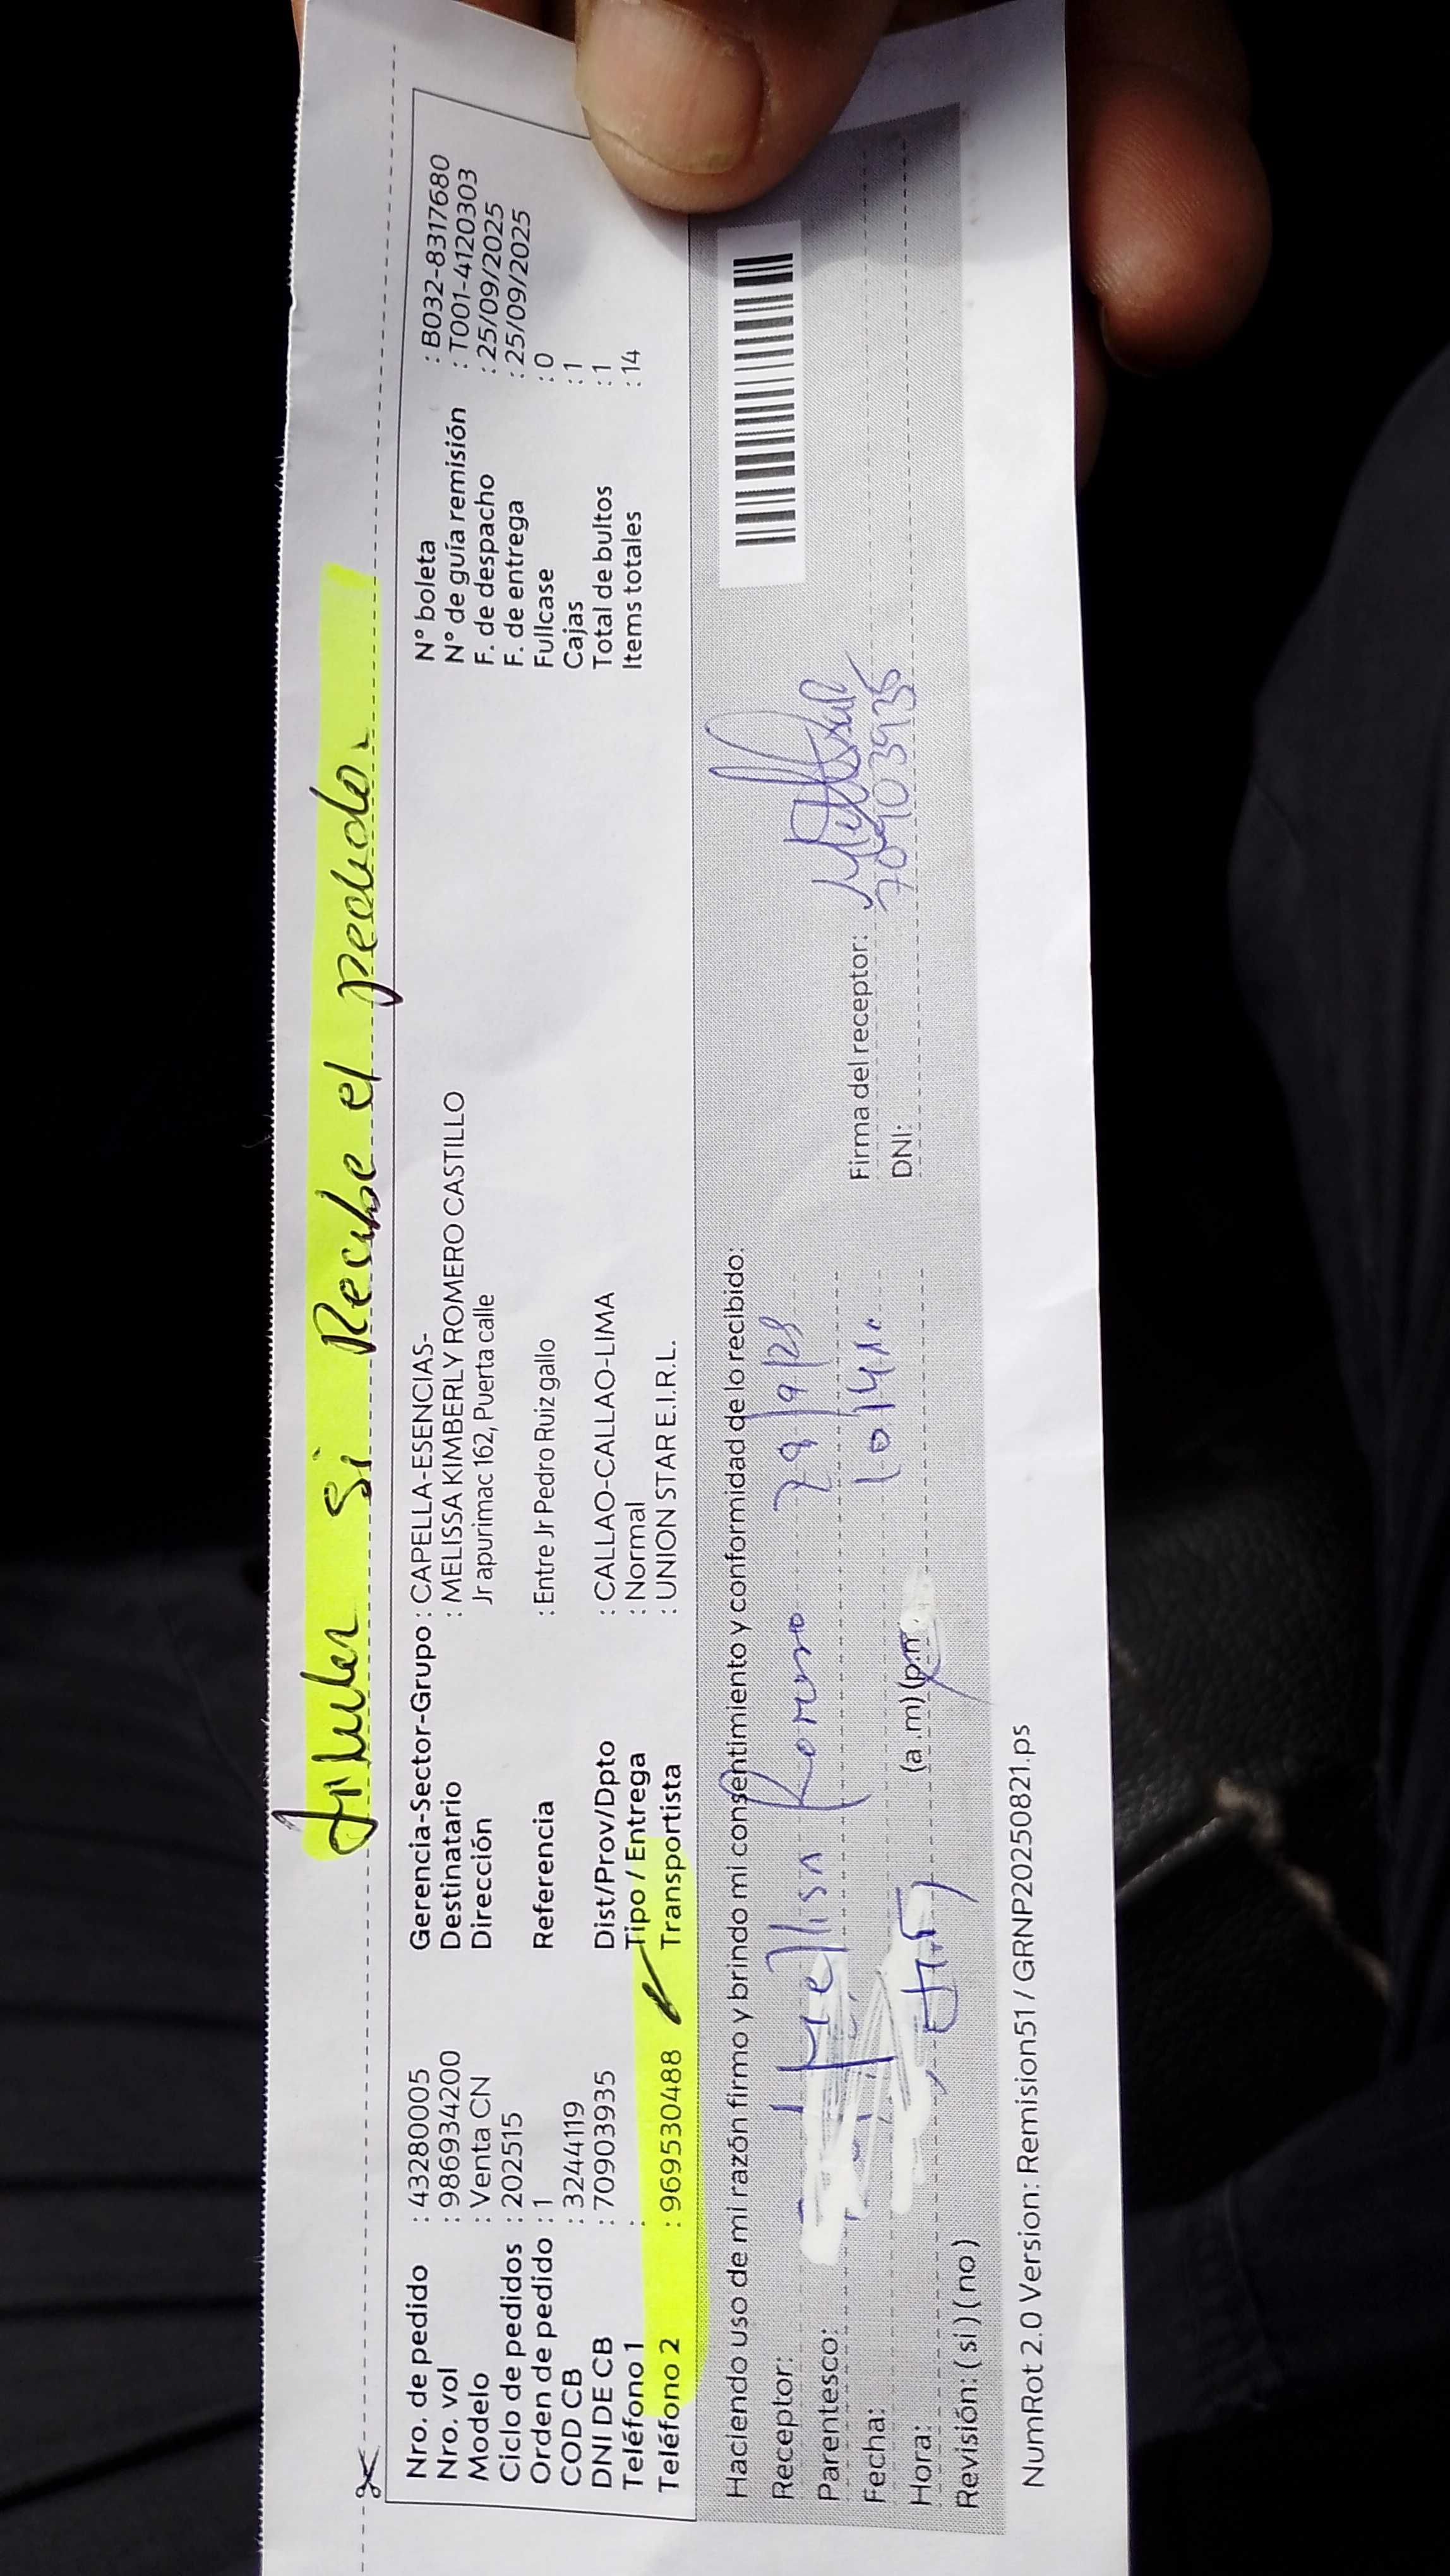 si Recibe el pedido.
Nro. de pedido : 43280005 Gerencia-Sector-Grupo : CAPELLA-ESENCIAS- N° boleta : B032-8317680
Nro. vol : 986934200 Destinatario : MELISSA KIMBERLY ROMERO CASTILLO N° de guía remisión : T001-4120303
Modelo : Venta CN Dirección Jr apurimac 162, Puerta calle F. de despacho : 25/09/2025
Ciclo de pedidos : 202515 F. de entrega : 25/09/2025
Orden de pedido : 1 Referencia : Entre Jr Pedro Ruiz gallo Fullcase : 0
COD CB : 3244119 Cajas : 1
DNI DE CB : 70903935 Dist/Prov/Dpto : CALLAO-CALLAO-LIMA Total de bultos : 1
Teléfono 1 : Tipo / Entrega : Normal Items totales : 14
Teléfono 2 : 969530488 Transportista : UNION STAR E.I.R.L.
Haciendo uso de mi razón firmo y brindo mi consentimiento y conformidad de lo recibido:
Receptor: Mellisa Romero
Parentesco:
Fecha: Firma del receptor:
Hora: (a.m) (p.m DNI: 70903935
Revisión: ( si ) ( no )
NumRot 2.0 Version: Remision51 / GRNP20250821.ps